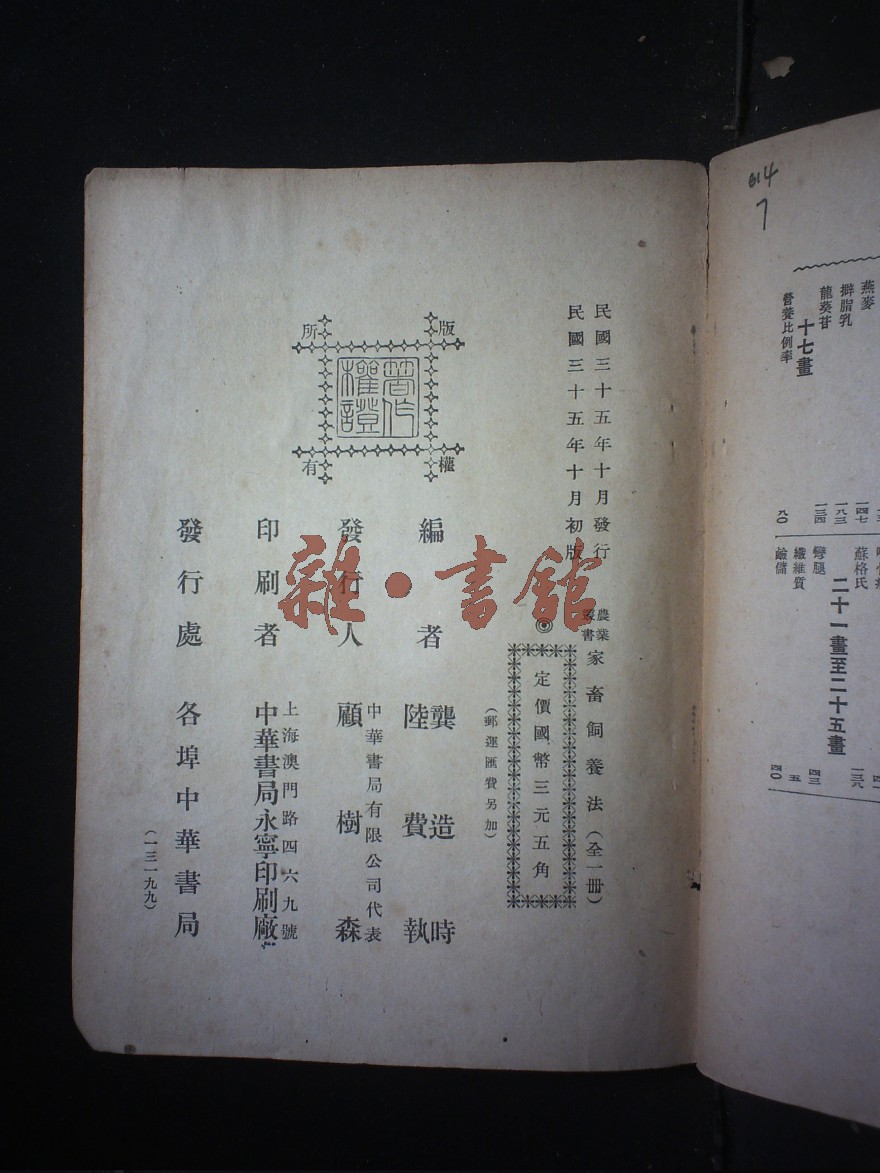 614
7
燕麥
擀脂乳
龍葵苷
十七畫
營養比例率
一四七
一八三
一三四
八〇
蘇格氏
二十一畫至二十五畫
彎腿
纖維質
鹼儲
一三八
四三
五
四〇
民國三十五年十月發行
民國三十五年十月初版
農業叢書 家畜飼養法（全一册）
◎定價國幣三元五角
（郵運匯費另加）
編者 龔造時
陸費執
發行人 中華書局有限公司代表
顧樹森
印刷者 上海澳門路四六九號
中華書局永寧印刷廠
發行處 各埠中華書局
（一三一九九）
版權所有
著作權證
雜·書館